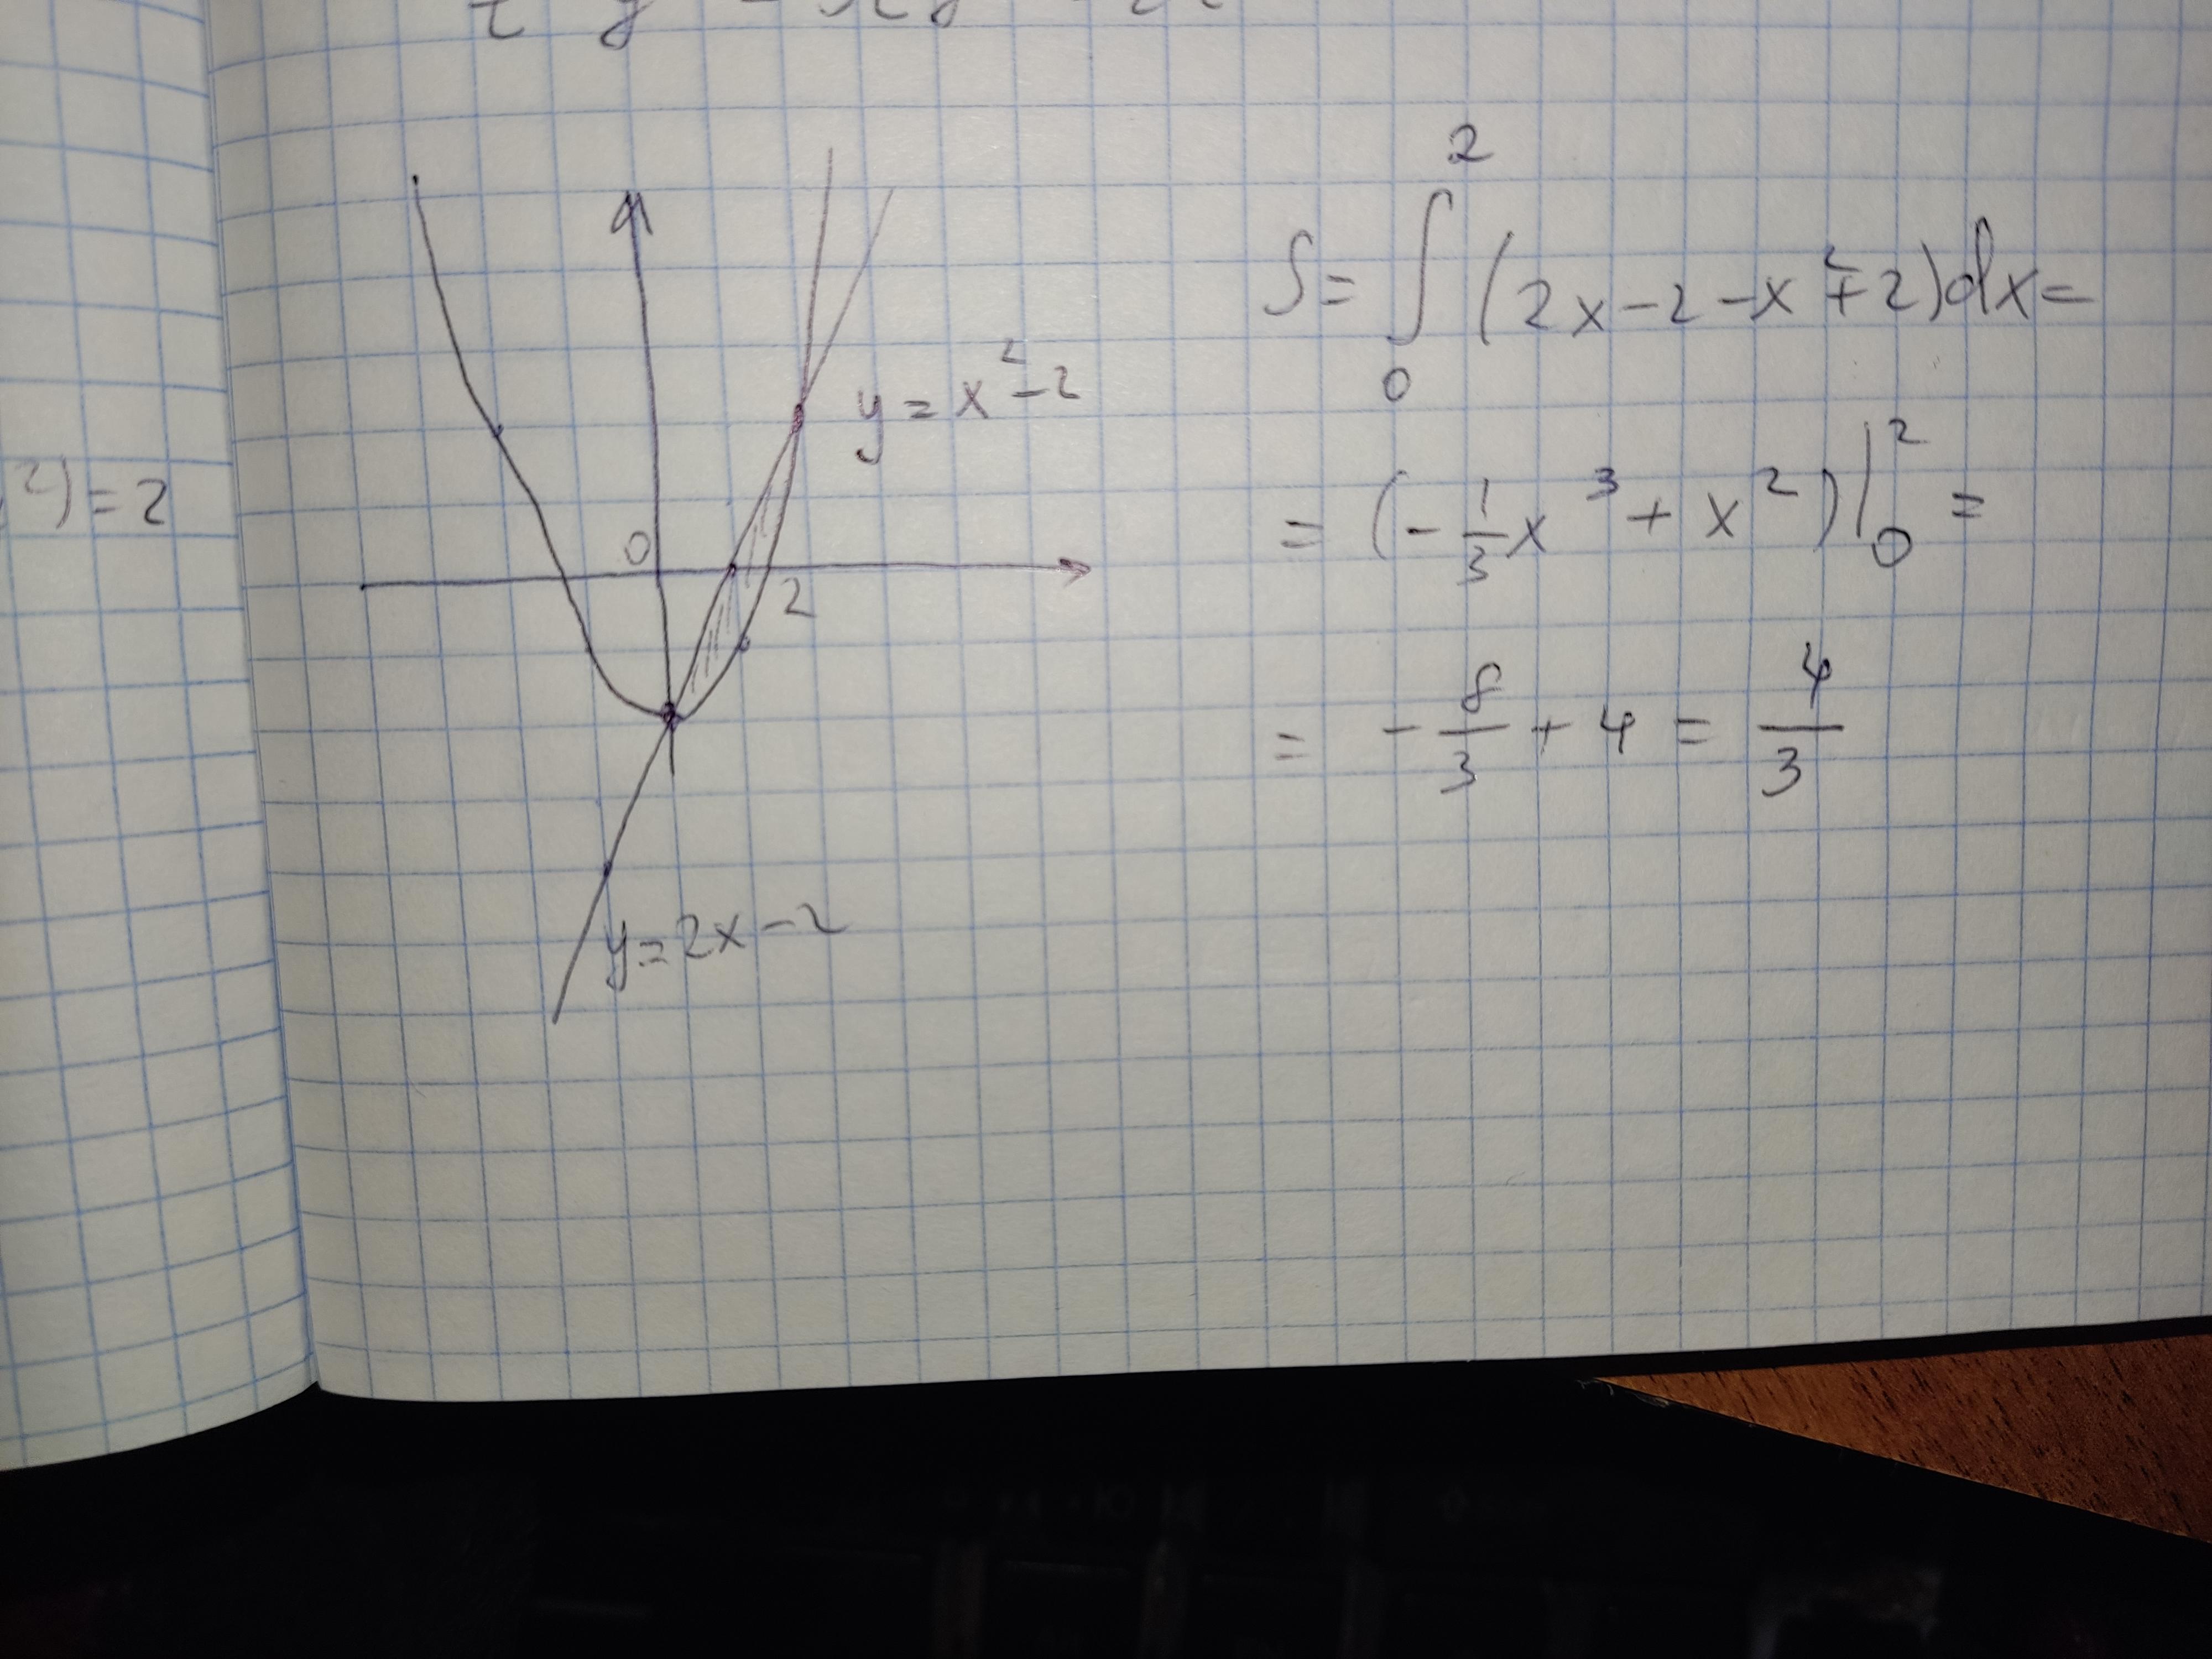 ²)=2
0
2
y=x²-2
y=2x-2
S=∫₀²(2x-2-x²+2)dx=
=(-1/3x³+x²)|₀²=
=-8/3+4=4/3